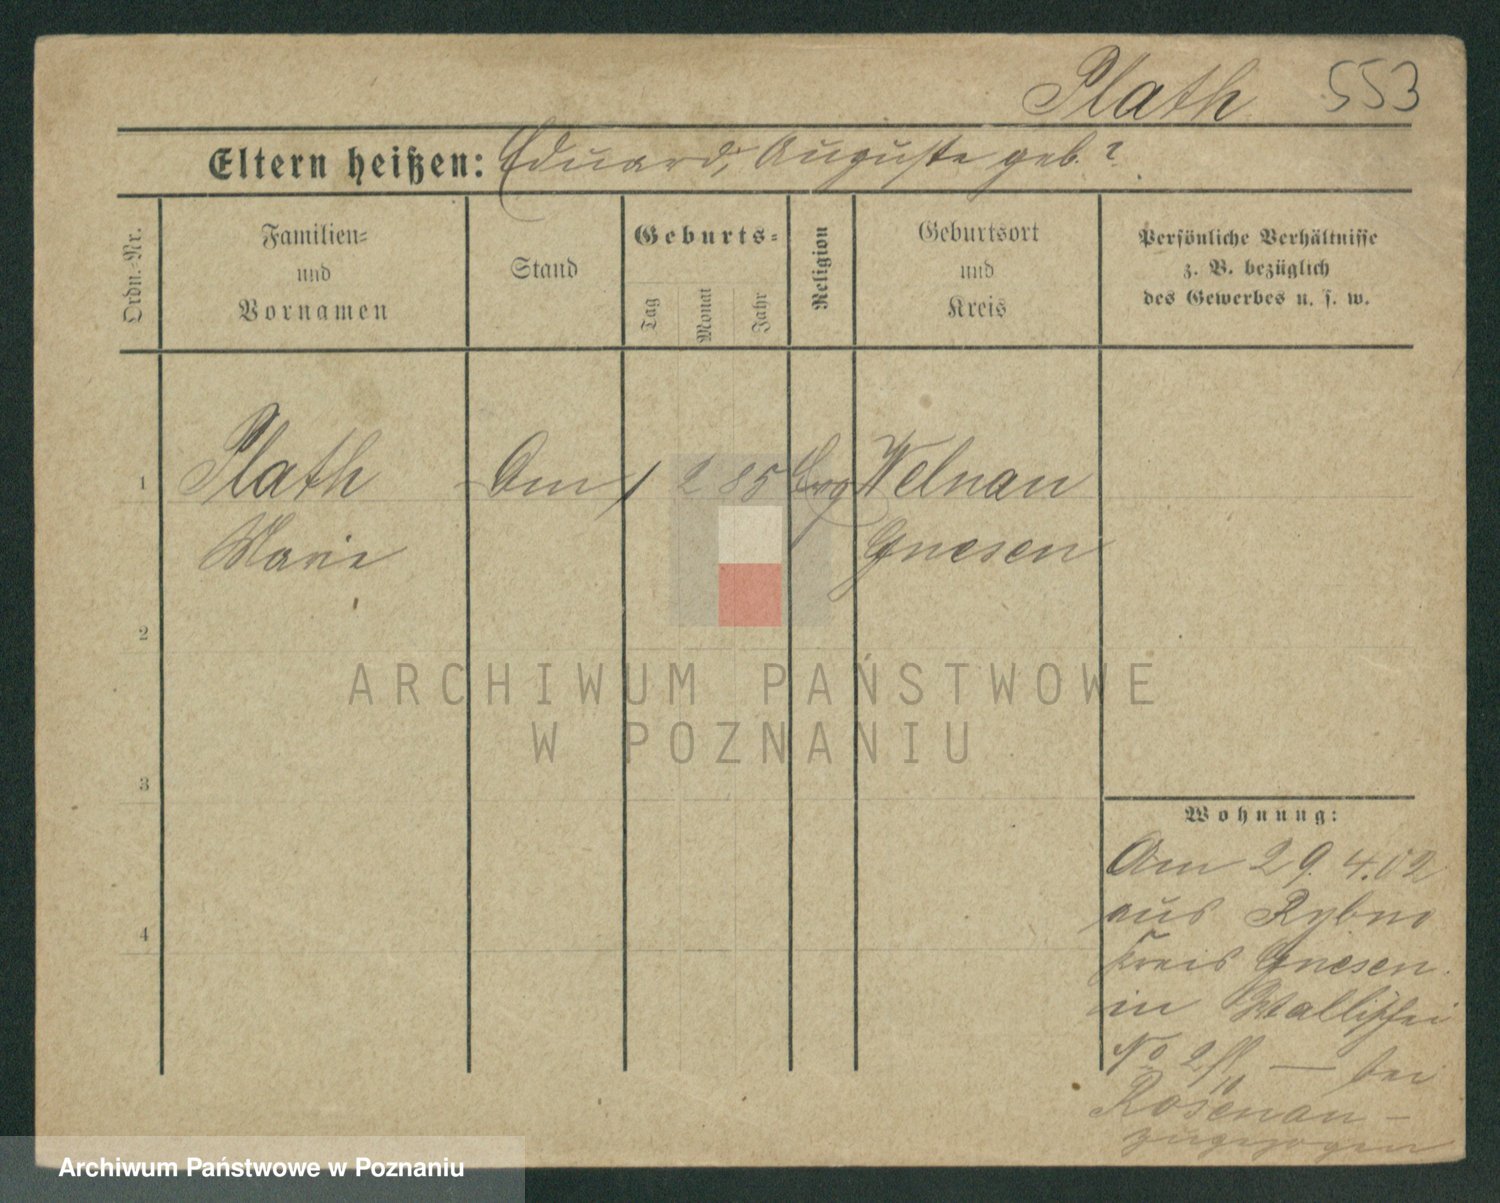 Plath 553
Eltern heißen: Eduard, Auguste geb. ?
Ordn.-Nr.
Familien-
und
Vornamen
Stand
Geburts-
Tag
Monat
Jahr
Religion
Geburtsort
und
Kreis
Persönliche Verhältnisse
z. B. bezüglich
des Gewerbes u. s. w.
1 Plath 1 2 85 Evg Welnau
Marie Gnesen
2
3
4
ARCHIWUM PAŃSTWOWE
W POZNANIU
Wohnung:
Am 29.4.02
aus Rybno
Kreis Gnesen
in
No 2 — bei
Rosenau -
zugezogen
Archiwum Państwowe w Poznaniu